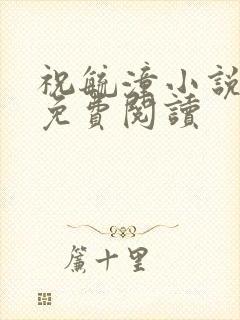 祝毓漳小說
免費閱讀
簾十里